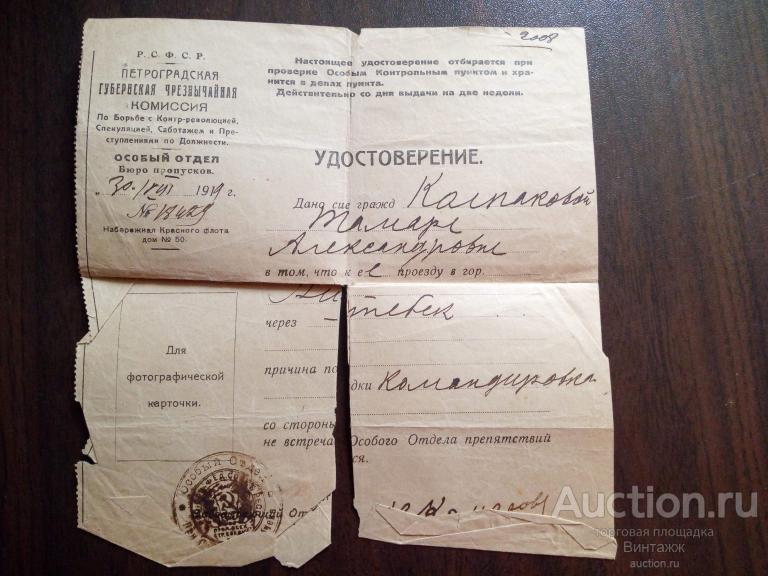 2008
Р. С. Ф. С. Р.
ПЕТРОГРАДСКАЯ
ГУБЕРНСКАЯ ЧРЕЗВЫЧАЙНАЯ
КОМИССИЯ
По Борьбе с Контр-революцией,
Спекуляцией, Саботажем и Пре-
ступлениями по Должности.
ОСОБЫЙ ОТДЕЛ
Бюро пропусков.
„30“ VIII 1919 г.
№ 18429
Набережная Красного флота
дом № 50.
Настоящее удостоверение отбирается при
проверке Особым Контрольным пунктом и хра-
нится в делах пункта.
Действительно со дня выдачи на две недели.
УДОСТОВЕРЕНИЕ.
Дано сие гражд Колпаковой
Тамаре
Александровне
в том, что к ее проезду в гор.
Витебск
через
причина по дки Командировка
со стороны Особого Отдела препятствий
не встреча ся.
Для
фотографической
карточки.
Особый Отдел
Auction.ru
торговая площадка
Винтажж
auction.ru